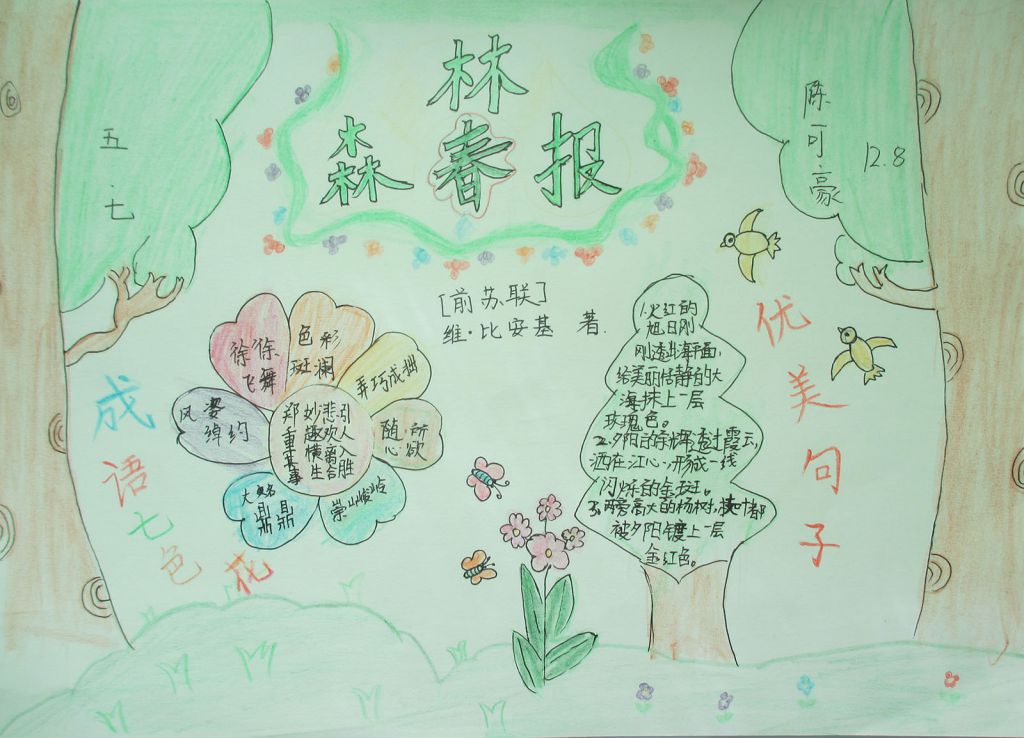 森林春报
五七
陈可豪
12.8
[前苏联]
维·比安基 著
成语七色花
徐徐飞舞
色彩斑澜
弄巧成拙
随心所欲
崇山峻岭
大名鼎鼎
风姿绰约
郑重其事
妙趣横生
悲欢离合
引人入胜
优美句子
1.火红的
旭日刚
刚透出海平面,
给美丽恬静的大
海抹上一层
玫瑰色。
2.夕阳的余晖透过霞云,
洒在江心,形成一线
闪烁的金斑。
3.两旁高大的杨树,枝叶都
被夕阳镀上一层
金红色。